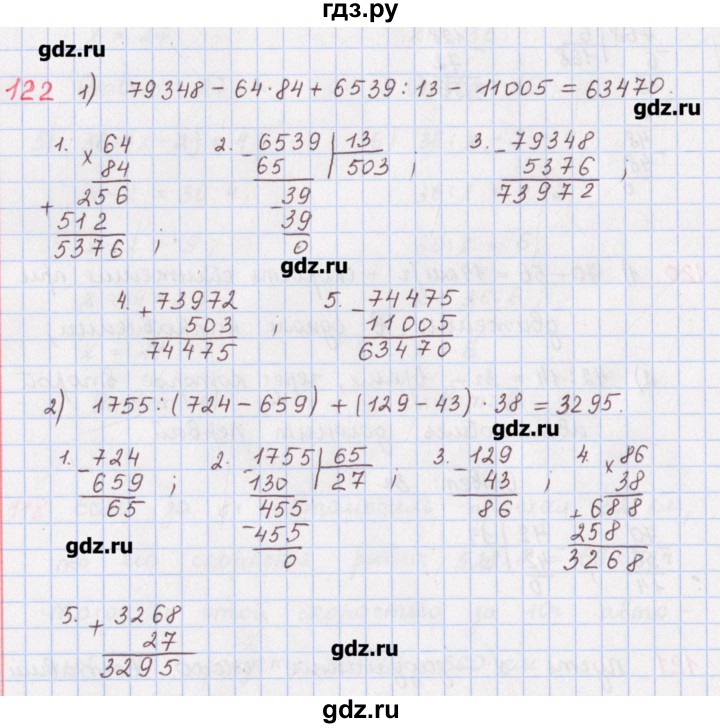 гдз.ру
gdz.ru
122 1) 79348 − 64·84 + 6539:13 − 11005 = 63470.
gdz.ru
1. × 64 2. − 6539 | 13 3. − 79348
84 65 503 ; 5376 ;
+ 256 − 39 73972
512 39
5376 ; 0
gdz.ru
4. + 73972 5. − 74475
503 11005
74475 63470
2) 1755:(724−659) + (129−43)·38 = 3295.
gdz.ru
1. − 724 2. − 1755 | 65 3. − 129 4. × 86
659 ; 130 27 ; 43 ; 38
65 − 455 86 + 688
455 258
0 3268
gdz.ru
5. + 3268
27
3295
gdz.ru
gdz.ru